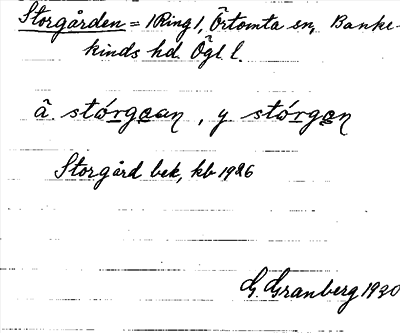 Storgården = 1 Ring 1, Örtomta sn, Banke-
kinds hd. Ögl. l.
ä stórgɷaɳ, y stórgɷɳ
Storgård bek, kb 1926
G. Granberg 1930